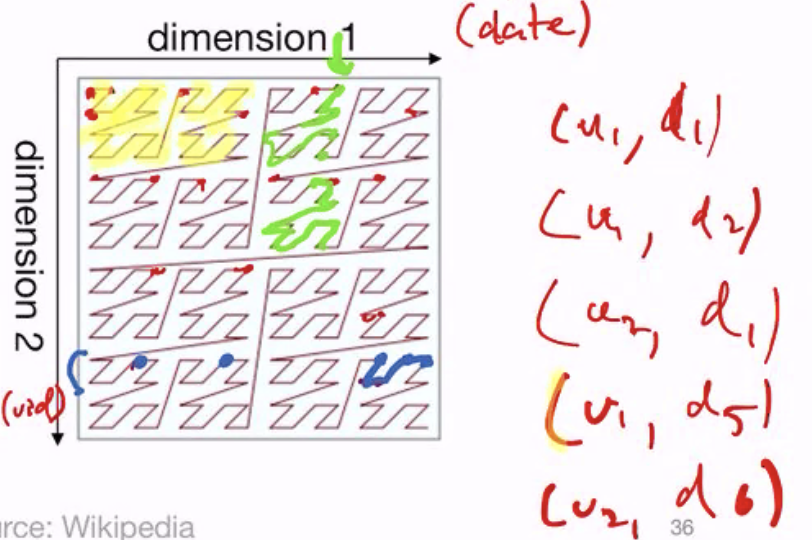 dimension 1
(date)
dimension 2
(uid)
(u1, d1)
(u1, d2)
(u2, d1)
(u1, d5)
(u2, d6)
urce: Wikipedia
36